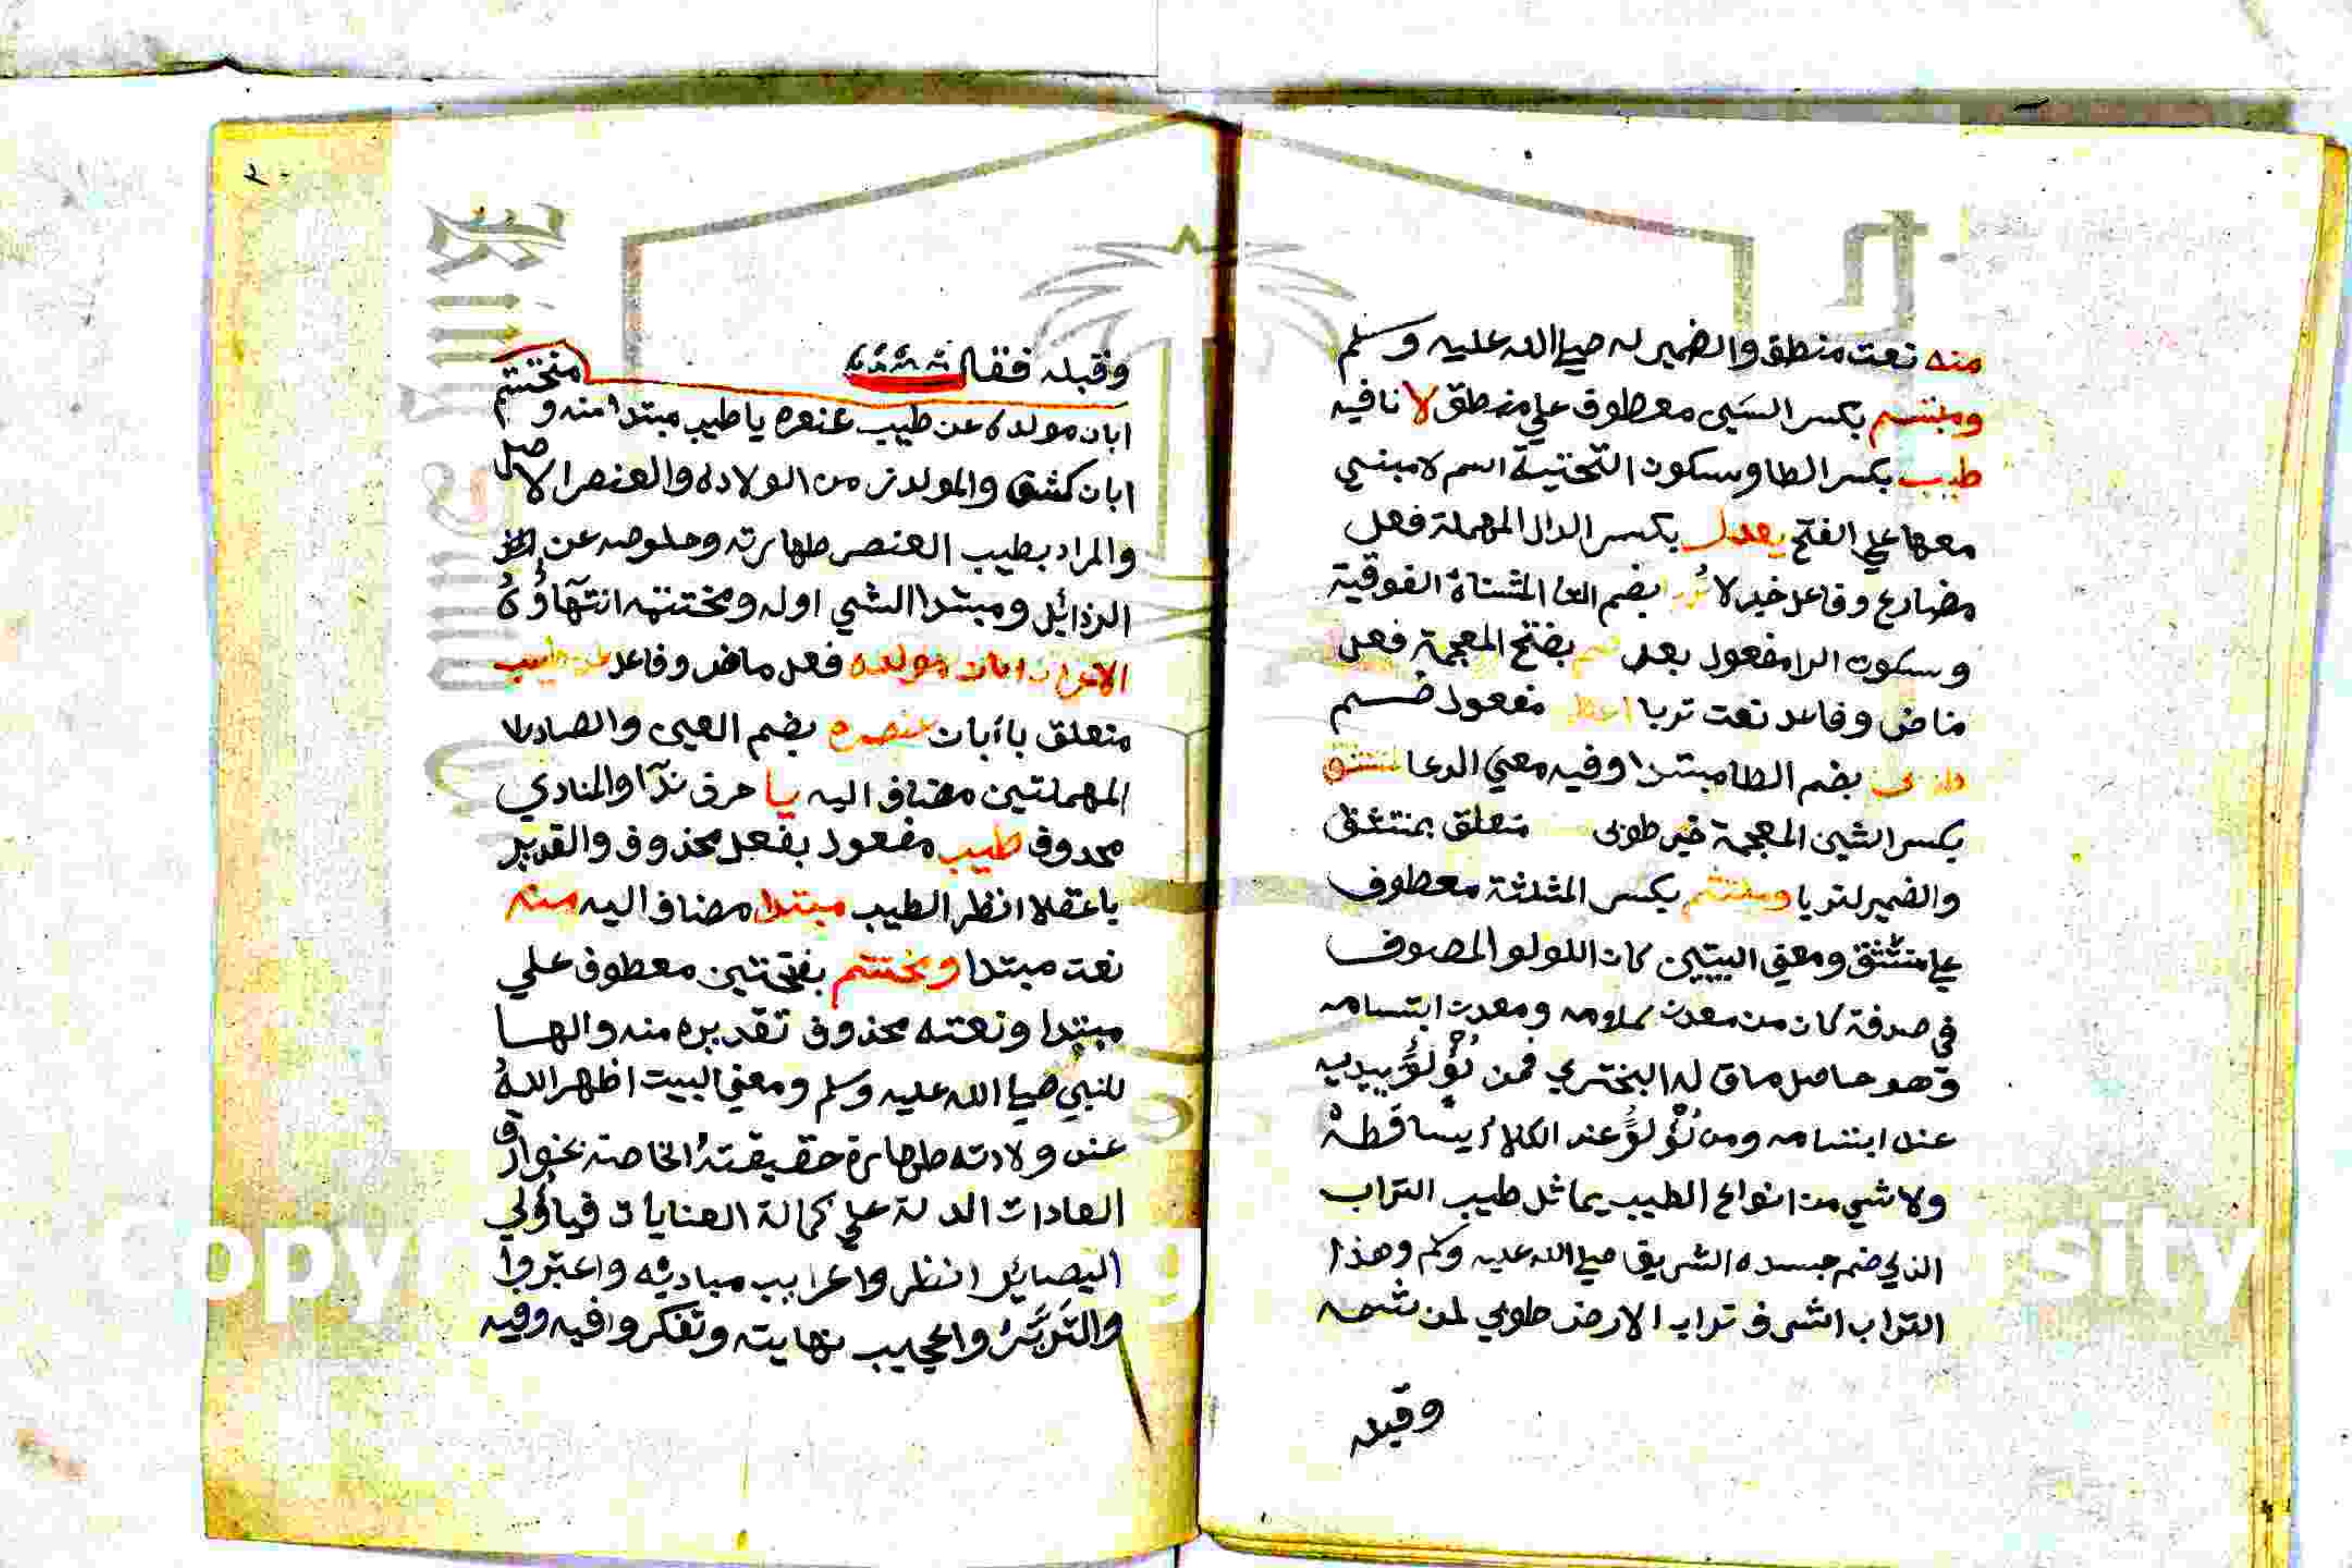 منه نعت منطق والضمير له صلي الله عليه وسلم
ومبتسم بكسر السين معطوف علي منطق لا نافيه
طيب بكسر الطا وسكون التحتية اسم لا مبني
معها علي الفتح يعدل بكسر الدال المهملة فعل
مضارع وفاعل خبر لا بضم التا المثناة الفوقية
وسكون الرا مفعول يعدل بفتح المعجمة فعل
ماض وفاعل نعت تربا مفعول ضم
بضم الطا مبتدا وفيه معني الدعا لمنتشق
بكسر الشين المعجمة خبر طوبي متعلق بمنتشق
والضمير لتربا وملتثم بكسر المثلثة معطوف
علي منتشق ومعني البيتين كان اللولو المصوف
في صدفة كان من معدن كلامه ومعدن ابتسامه
وهو حاصل ماق له البختري فمن لؤلؤ يبديه
عند ابتسامه ومن لؤلؤ عند الكلام يساقطه
ولا شي من انواع الطيب يماثل طيب التراب
الذي ضم جسده الشريف صلي الله عليه وسلم وهذا
التراب اشرف تراب الارض طوبي لمن شمه
وقبله
وقبله فقال
ابان مولده عن طيب عنصره يا طيب مبتدا منه ومختتم
ابان كشف والمولد من الولادة والعنصر الاصل
والمراد بطيب العنصر طهارته وخلوصه عن
الرذائل ومبتدا الشي اوله ومختتمه انتهاؤه
الاعراب ابان مولده فعل ماض وفاعل عن طيب
متعلق بابان عنصره بضم العين والصاد
المهملتين مضاف اليه يا حرف ندآ والمنادي
محدوف طيب مفعول بفعل محذوف والتقدير
يا عقلا انظر الطيب مبتدا مضاف اليه منه
نعت مبتدا ومختتم بفتحتين معطوف علي
مبتدا ونعته محذوف تقديره منه والها
للنبي صلي الله عليه وسلم ومعني البيت اظهر الله
عند ولادته طهارة حقيقته الخاصة بخوارق
العادات الدلة علي كمالة العنايات فيا اولي
البصائر انظروا غرايب مباديه واعتبروا
والعجيب نهايته وتفكروا فيه وفيه